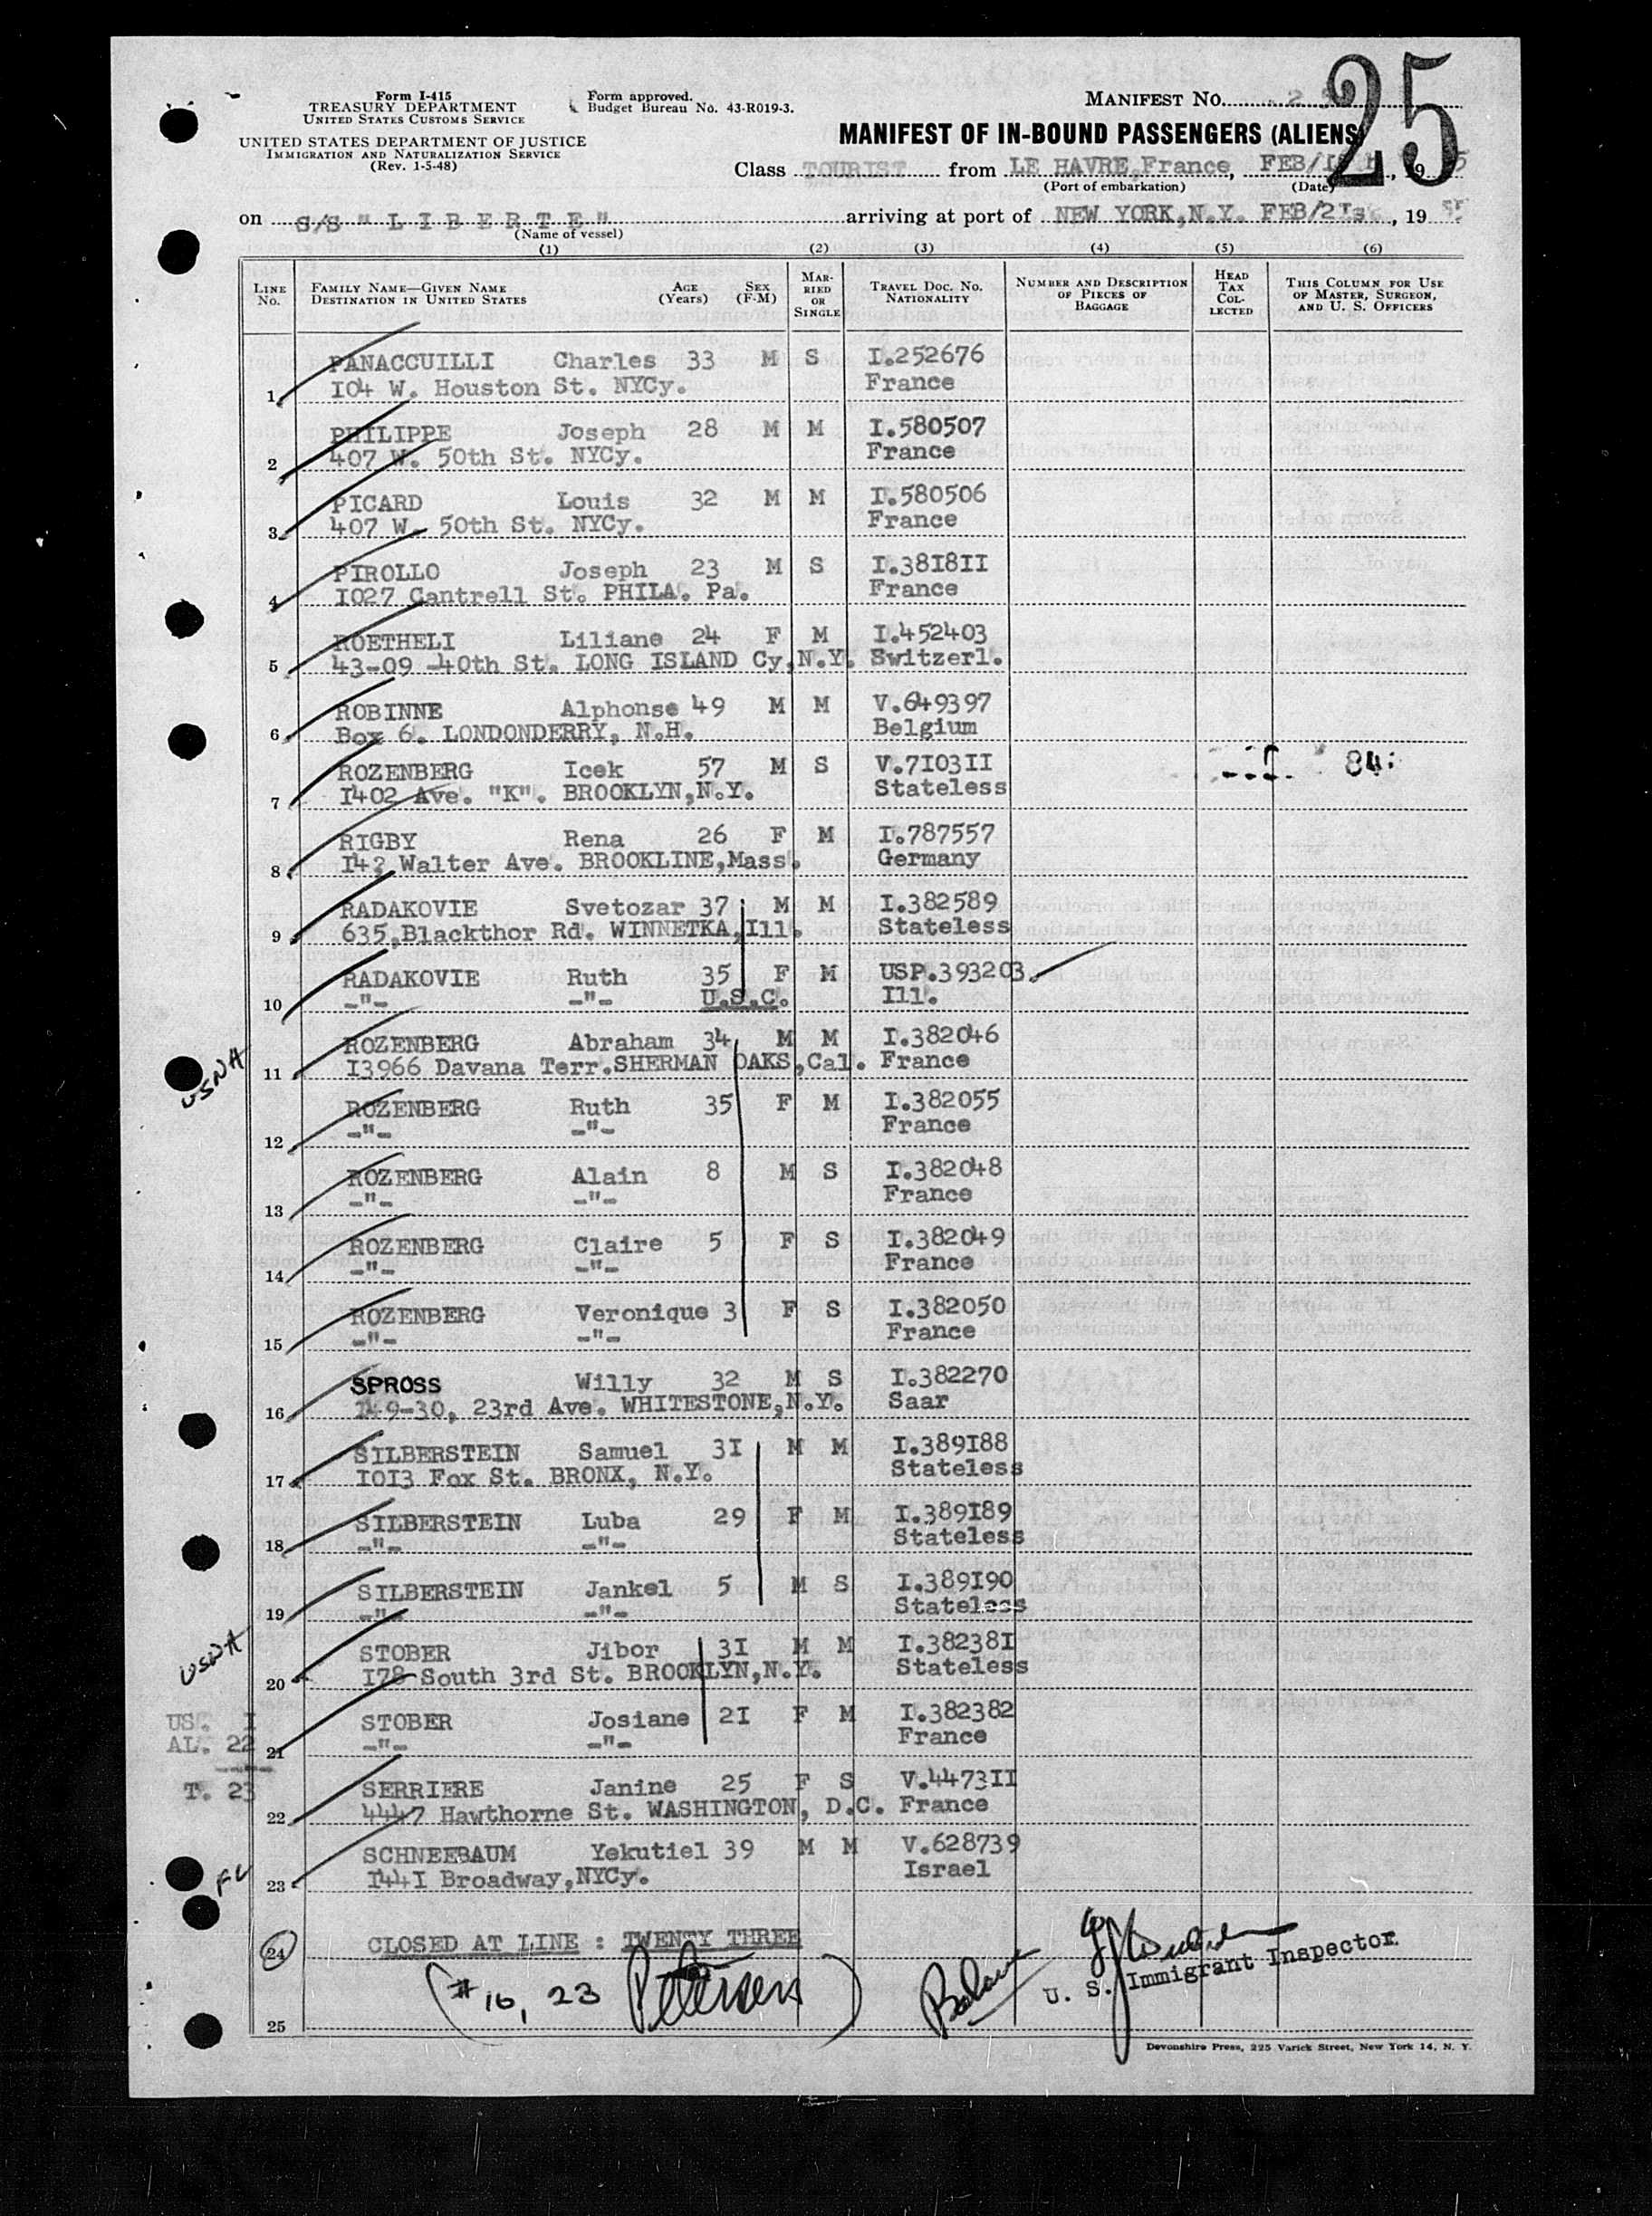 25
Form I-415
TREASURY DEPARTMENT
UNITED STATES CUSTOMS SERVICE
UNITED STATES DEPARTMENT OF JUSTICE
IMMIGRATION AND NATURALIZATION SERVICE
(Rev. 1-5-48)
Form approved.
Budget Bureau No. 43-R019-3.
MANIFEST NO.
MANIFEST OF IN-BOUND PASSENGERS (ALIENS)
Class TOURIST from LE HAVRE,France, FEB/ , 19 5
(Port of embarkation) (Date)
on S/S "LIBERTE" arriving at port of NEW YORK,N.Y. FEB/2Ist, 19 55
(Name of vessel)
(1) (2) (3) (4) (5) (6)
LINE No. FAMILY NAME—GIVEN NAME DESTINATION IN UNITED STATES AGE (Years) SEX (F-M) MARRIED OR SINGLE TRAVEL DOC. NO. NATIONALITY NUMBER AND DESCRIPTION OF PIECES OF BAGGAGE HEAD TAX COLLECTED THIS COLUMN FOR USE OF MASTER, SURGEON, AND U. S. OFFICERS
PANACCUILLI Charles 33 M S I.252676
1 I04 W. Houston St. NYCy. France
PHILIPPE Joseph 28 M M I.580507
2 407 W. 50th St. NYCy. France
PICARD Louis 32 M M I.580506
3 407 W. 50th St. NYCy. France
PIROLLO Joseph 23 M S I.38I8II
4 I027 Cantrell St. PHILA. Pa. France
ROETHELI Liliane 24 F M I.452403
5 43-09 -40th St. LONG ISLAND Cy,N.Y. Switzerl.
ROBINNE Alphonse 49 M M V.649397
6 Box 6. LONDONDERRY, N.H. Belgium
ROZENBERG Icek 57 M S V.7I03II 84
7 I402 Ave. "K". BROOKLYN,N.Y. Stateless
RIGBY Rena 26 F M I.787557
8 Walter Ave. BROOKLINE,Mass. Germany
RADAKOVIE Svetozar 37 M M I.382589
9 635,Blackthor Rd. WINNETKA,Ill. Stateless
RADAKOVIE Ruth 35 F M USP.393203.
10 -"- -"- U.S.C. Ill.
USNA
ROZENBERG Abraham 34 M M I.382046
11 I3966 Davana Terr.SHERMAN OAKS,Cal. France
ROZENBERG Ruth 35 F M I.382055
12 -"- -"- France
ROZENBERG Alain 8 M S I.382048
13 -"- -"- France
ROZENBERG Claire 5 F S I.382049
14 -"- -"- France
ROZENBERG Veronique 3 F S I.382050
15 -"- -"- France
SPROSS Willy 32 M S I.382270
16 I49-30, 23rd Ave. WHITESTONE,N.Y. Saar
SILBERSTEIN Samuel 3I M M I.389I88
17 I0I3 Fox St. BRONX, N.Y. Stateless
SILBERSTEIN Luba 29 F M I.389I89
18 -"- -"- Stateless
SILBERSTEIN Jankel 5 M S I.389I90
19 -"- -"- Stateless
USNA
STOBER Jibor 3I M M I.38238I
20 I78 South 3rd St. BROOKLYN,N.Y. Stateless
US. I
STOBER Josiane 2I F M I.382382
AL. 22
21 -"- -"- France
T. 23
SERRIERE Janine 25 F S V.4473II
22 4447 Hawthorne St. WASHINGTON, D.C. France
SCHNEEBAUM Yekutiel 39 M M V.628739
23 I44I Broadway,NYCy. Israel
24 CLOSED AT LINE : TWENTY THREE
(# 16, 23 Petersen)
U. S. Immigrant Inspector
25
Devonshire Press, 225 Varick Street, New York 14, N. Y.